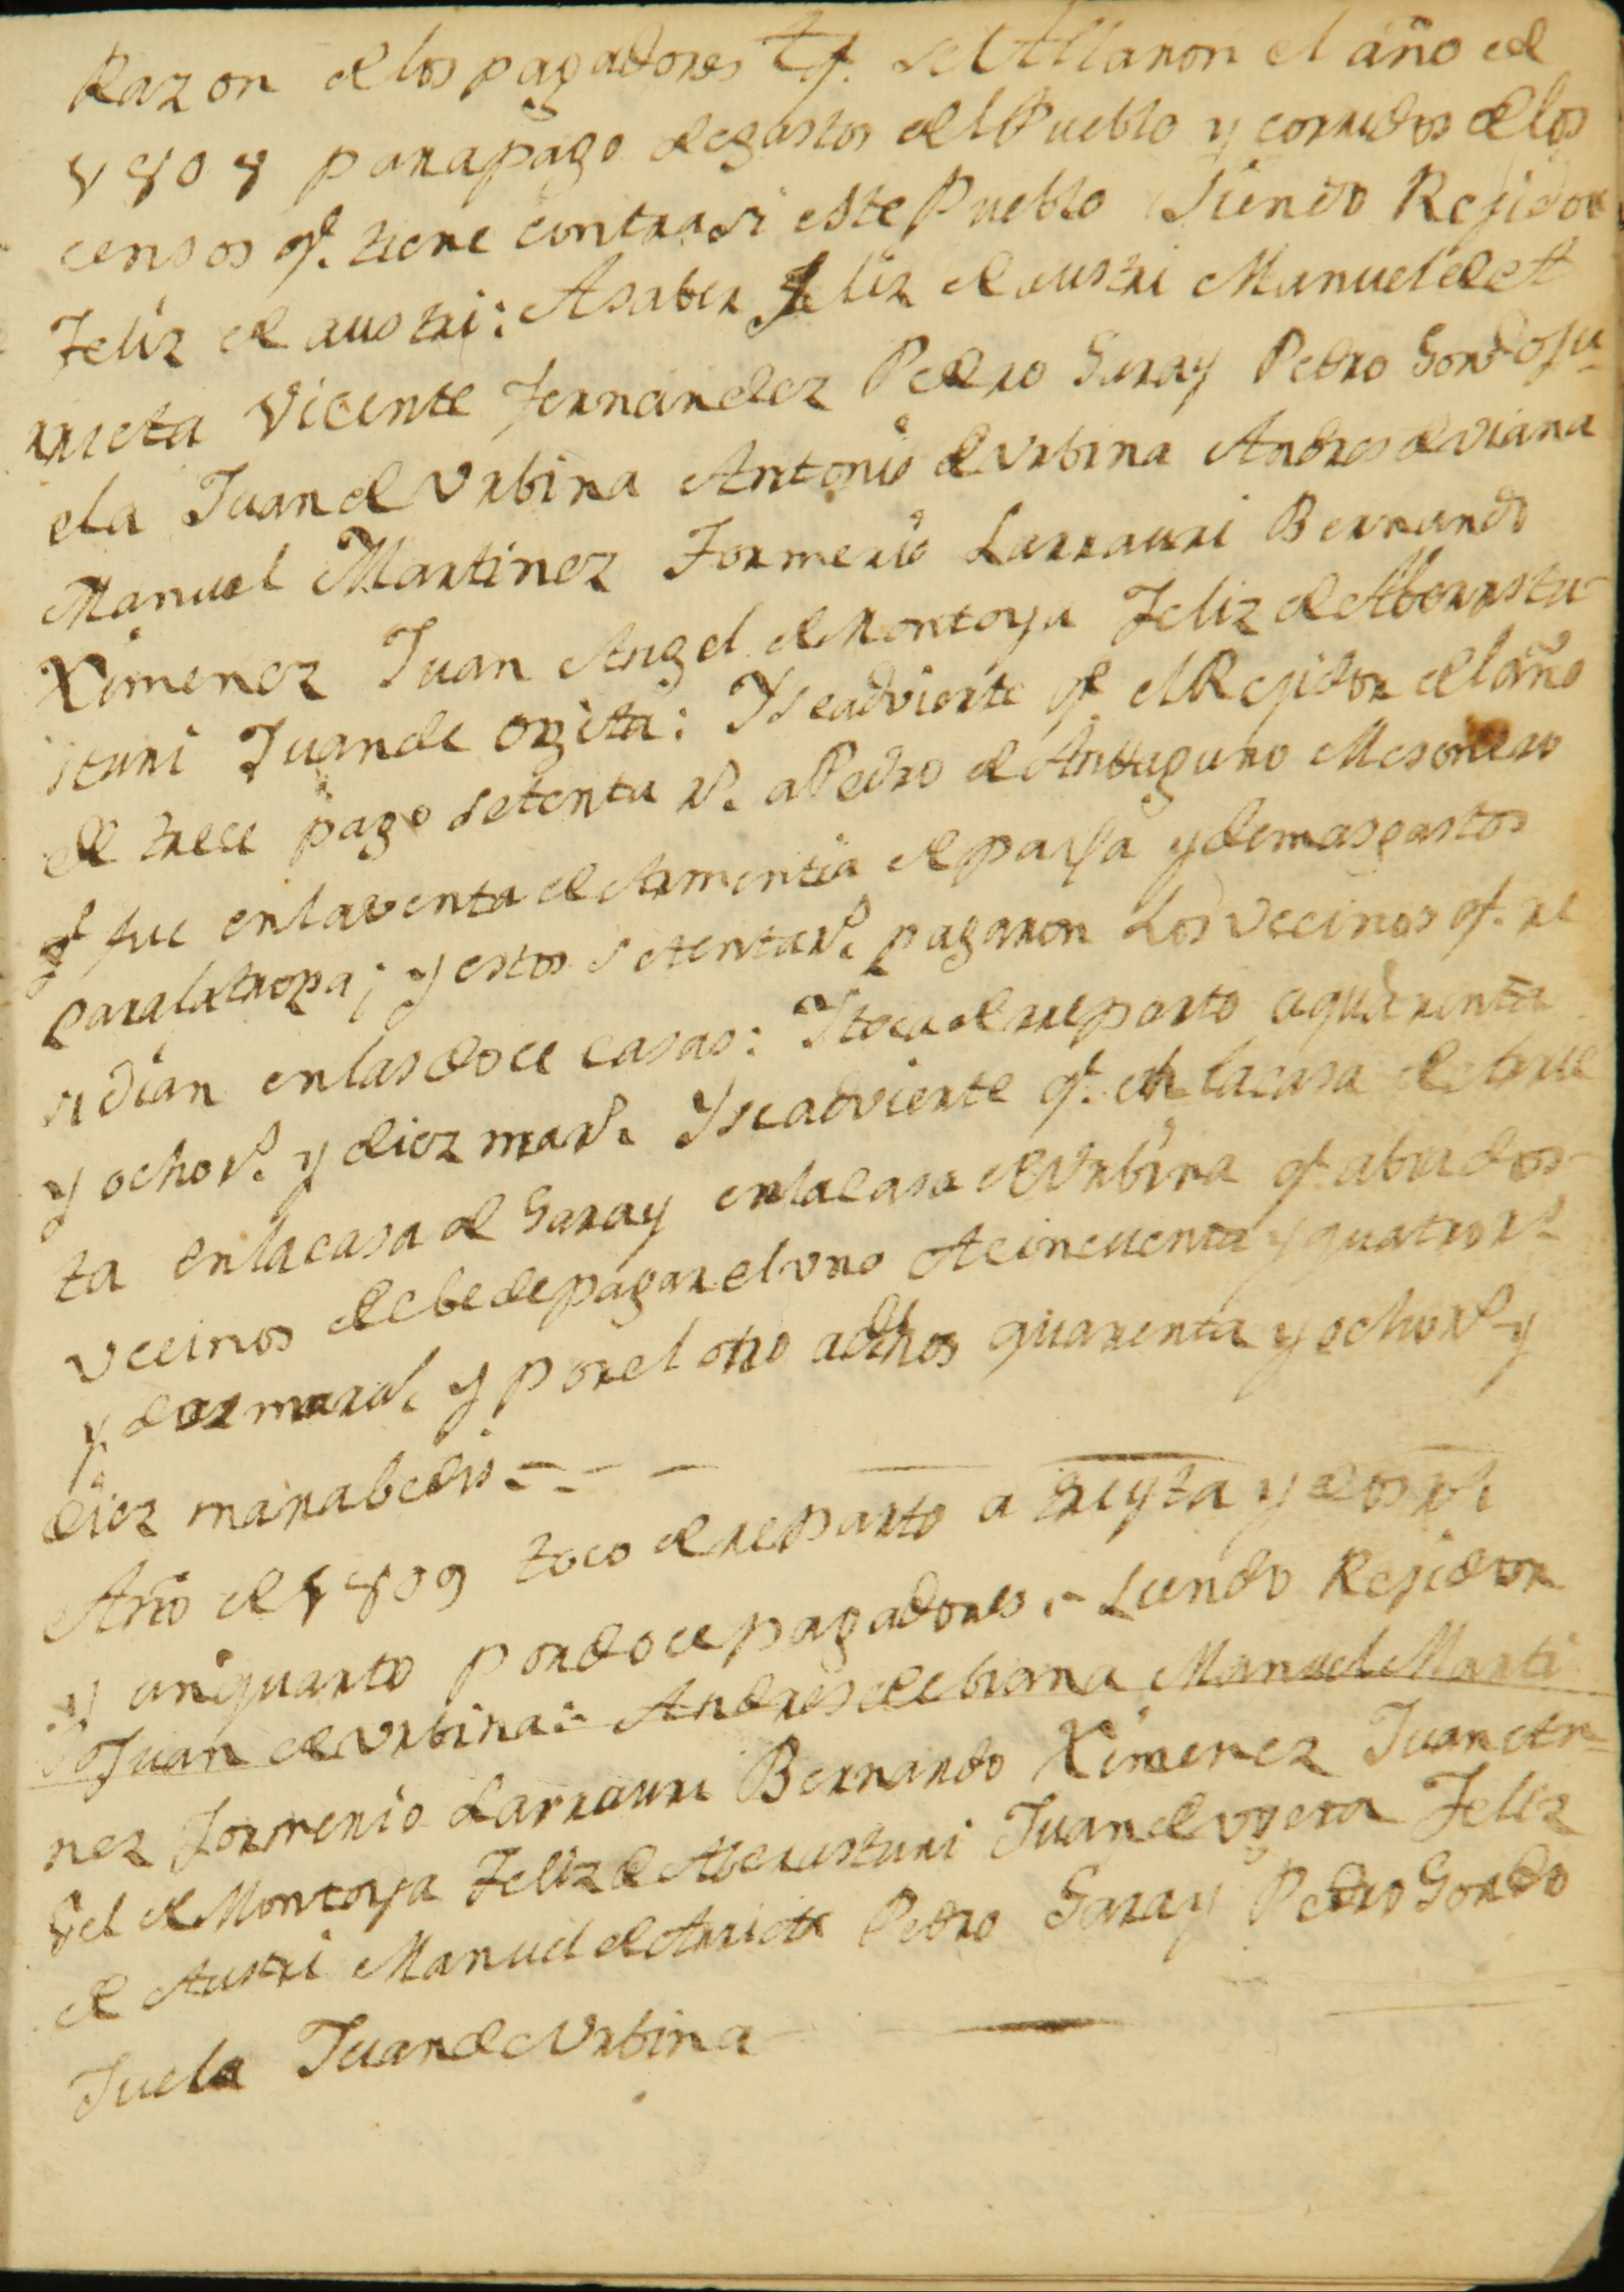 Razon de los pagadores q.e se Allaron el año de
1808 para pago de gastos del Pueblo y corridos de los
censos q.e tiene contra si este Pueblo Siendo Rejidor
Feliz de austri: A saber Feliz de austri Manuel de A
rrieta Vicente Fernandez Pedro Garay Pedro Gordoju-
ela Juan de Vrbina Antonio de Vrbina Andres de Viana
Manuel Martinez Formerio Larrauri Bernardo
Ximenez Juan Angel de Montoya Feliz de Aberastu-
sturi Juan de : Y se advierte q.e el Rejidor del año
de trece pago setenta r.s a Pedro de Mesonero
q.e fue en la venta de Armentia de paja y demas gastos
para la tropa; y estos setenta r.s pagaron Los Vecinos q.e re
sidian en las doce casas: Y toca de reparto a quarenta
y ocho r.s y diez mar.s Y se advierte q.e en la casa de Arrie
ta en la casa de Garay en la casa de Vrbina q.e abia dos
vecinos debe de pagar el vno A cincuenta y quatro r.s
y mar.s y por el otro a dhos quarenta y ocho r.s y
diez marabedis - - -
Año de 1809 toco de reparto a treyta y dos r.s
y un quarto por doce pagadores.- Siendo Rejidor
Juan de Vrbina:- Andres de biana Manuel Marti
nez Formerio Larrauri Bernardo Ximenez Juan An-
gel de Montoya Feliz de Aberasturi Juan de Feliz
de Austri Manuel de Arrieta Pedro Garay Pedro Gordo
Juela Juan de Vrbina